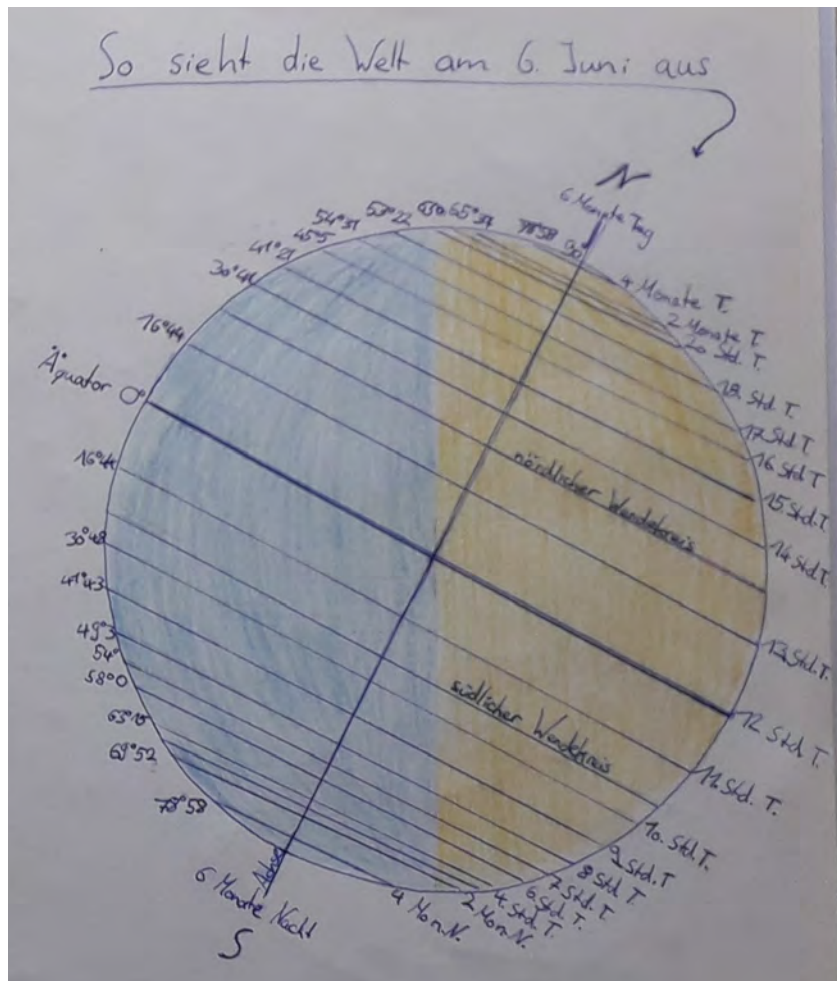 So sieht die Welt am 6. Juni aus
N
6 Monate Tag
90
65°37
53°22
54°31
45°5
41°21
30°41
16°44
Äquator 0°
16°44
30°48
41°43
49°3
54°
58°0
63°15
69°52
78°58
4 Monate T.
2 Monate T.
20. Std. T.
18. Std. T.
17 Std T
16 Std T
15 Std. T.
14 Std. T.
13. Std. T.
12. Std. T.
11. Std. T.
10. Std. T.
9. Std. T
8 Std. T.
7 Std. T.
6 Std. T.
4. Std. T.
2 Mon. N.
4 Mon. N.
nördlicher Wendekreis
südlicher Wendekreis
Achse
6 Monate Nacht
S